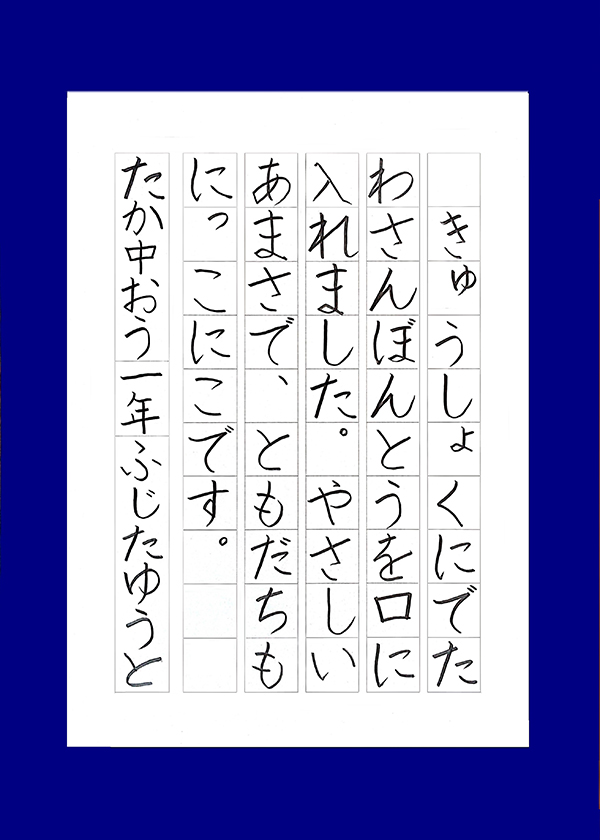 きゅうしょくにでた
わさんぼんとうを口に
入れました。やさしい
あまさで、ともだちも
にっこにこです。
たか中おう一年ふじたゆうと